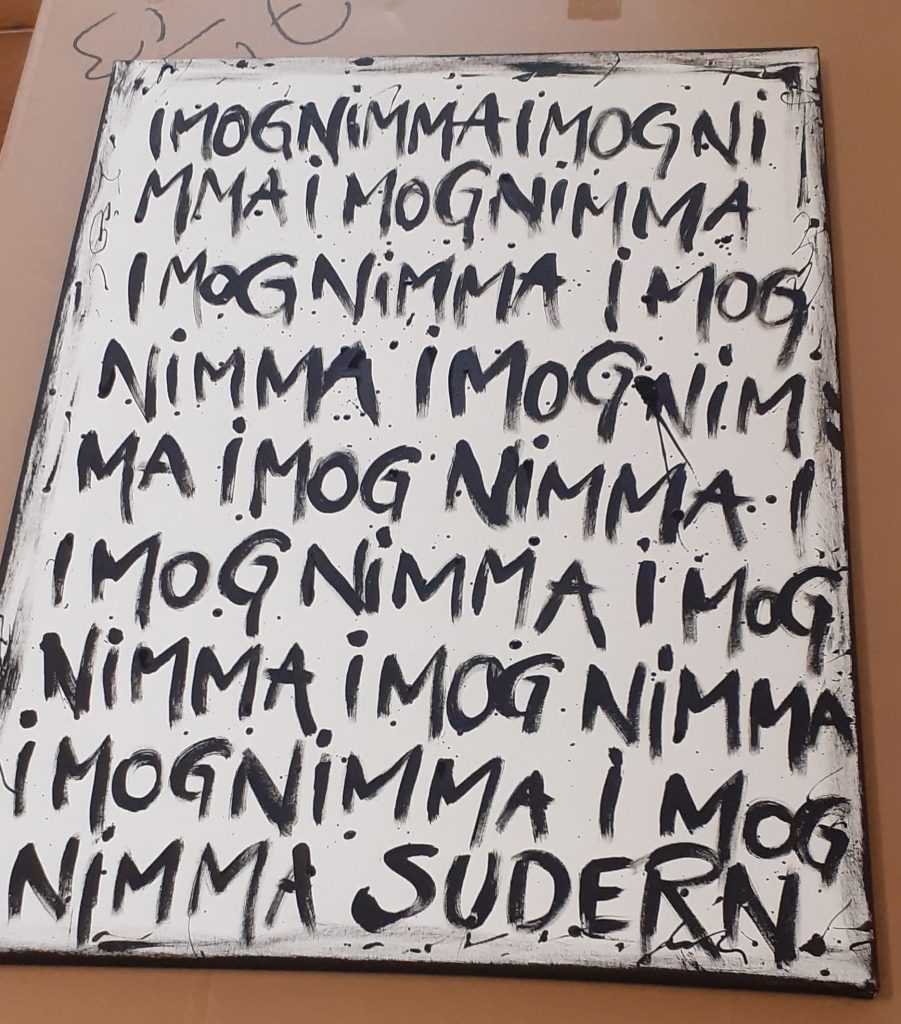 iMOGNiMMA iMOGNi
MMA i MOGNiMMA
iMOGNiMMA i MOG
NiMMA i MOGNiM
MA iMOG NiMMA i
iMOG NiMMA i MOG
NiMMA iMOG NiMMA
iMOGNiMMA i MOG
NiMMA SUDERN